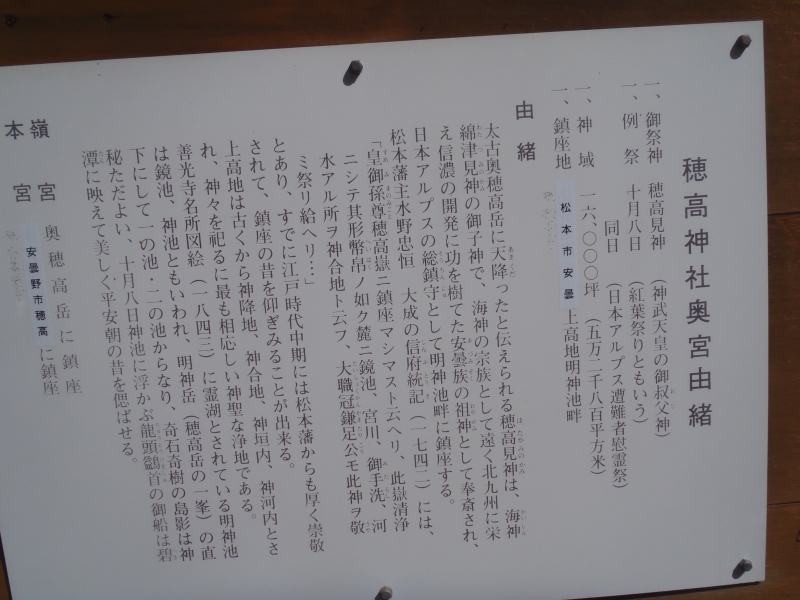 穂高神社奥宮由緒
一、御祭神 穂高見神 (神武天皇の御叔父神)
一、例祭 十月八日 (紅葉祭りともいう)
同日 (日本アルプス遭難者慰霊祭)
一、神域 一六、〇〇〇坪 (五万二千八百平方米)
一、鎮座地 松本市安曇上高地明神池畔
由緒
太古奥穂高岳に天降ったと伝えられる穂高見神は、海神
綿津見神の御子神で、海神の宗族として遠く北九州に栄
え信濃の開発に功を樹てた安曇族の祖神として奉斎され、
日本アルプスの総鎮守として明神池畔に鎮座する。
松本藩主水野忠恒 大成の信府統記(一七四二)には、
「皇御孫尊穂高嶽ニ鎮座マシマスト云ヘリ、此嶽清浄
ニシテ其形幣帛ノ如ク麓ニ鏡池、宮川、御手洗、河
水アル所ヲ神合地ト云フ、大職冠鎌足公モ此神ヲ敬
ミ祭リ給ヘリ…」
とあり、すでに江戸時代中期には松本藩からも厚く崇敬
されて、鎮座の昔を仰ぎみることが出来る。
上高地は古くから神降地、神合地、神垣内、神河内とさ
れ、神々を祀るに最も相応しい神聖な浄地である。
善光寺名所図絵(一八四三)に霊湖とされている明神池
は鏡池、神池ともいわれ、明神岳(穂高岳の一峯)の直
下にして一の池・二の池からなり、奇石奇樹の島影は神
秘ただよい、十月八日神池に浮かぶ龍頭鷁首の御船は碧
潭に映えて美しく平安朝の昔を偲ばせる。
嶺宮 奥穂高岳に鎮座
本宮 安曇野市穂高に鎮座